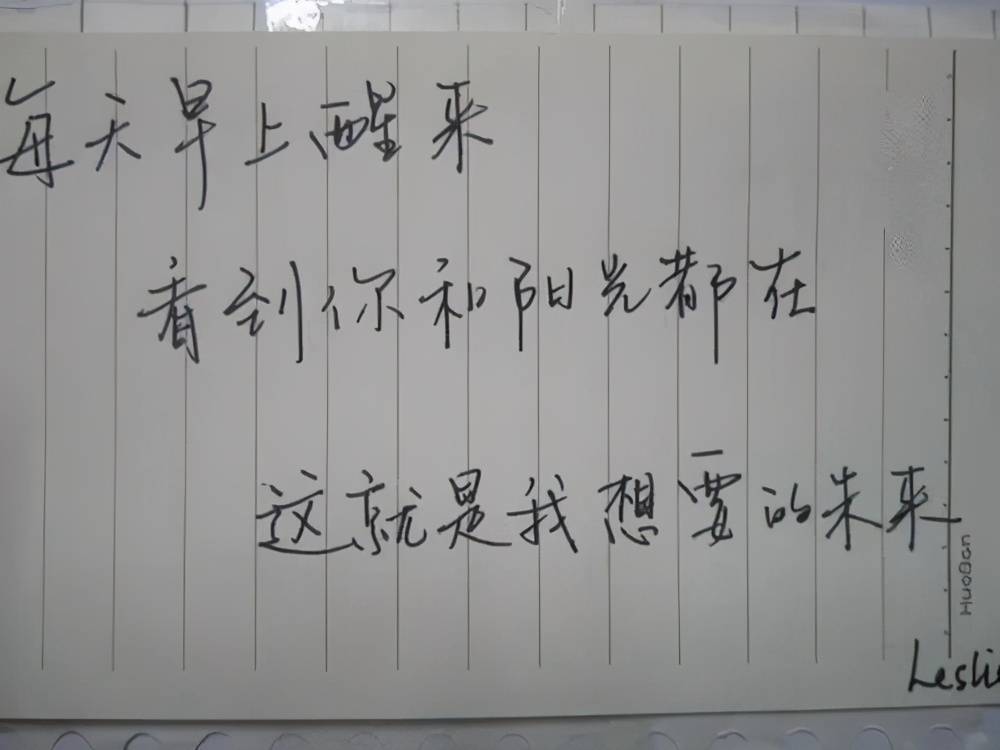 每天早上醒来
看到你和阳光都在
这就是我想要的未来
HuoBan
Leslie